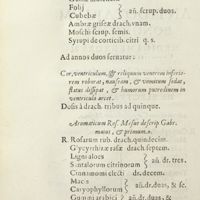 Folij
Cubebæ } añ. scrup. duos.
Ambræ griseæ drach. vnam.
Moschi scrup. semis.
Syrupi de corticib. citri q. s.
Ad annos duos seruatur:
Cor, ventriculum, & reliquum ventrem inferiorem roborat, nauseam, & vomitum sedat, flatus dissipat, & humorum putredinem in ventriculo arcet.
Dosis à drach. tribus ad quinque.
Aromaticum Ros. Mesuæ descrip. Gabr. maius, & primum.
R. Rosarum rub. drach. quindecim.
Glycyrrhizæ rasæ drach. septem.
Ligni aloes
Santalorum citrinorum } añ. dr. tres.
Cinnamomi electi dr. decem.
Macis
Caryophyllorum } añ. dr. duas, & se.
Gummi arabici } añ. dr. duas, &